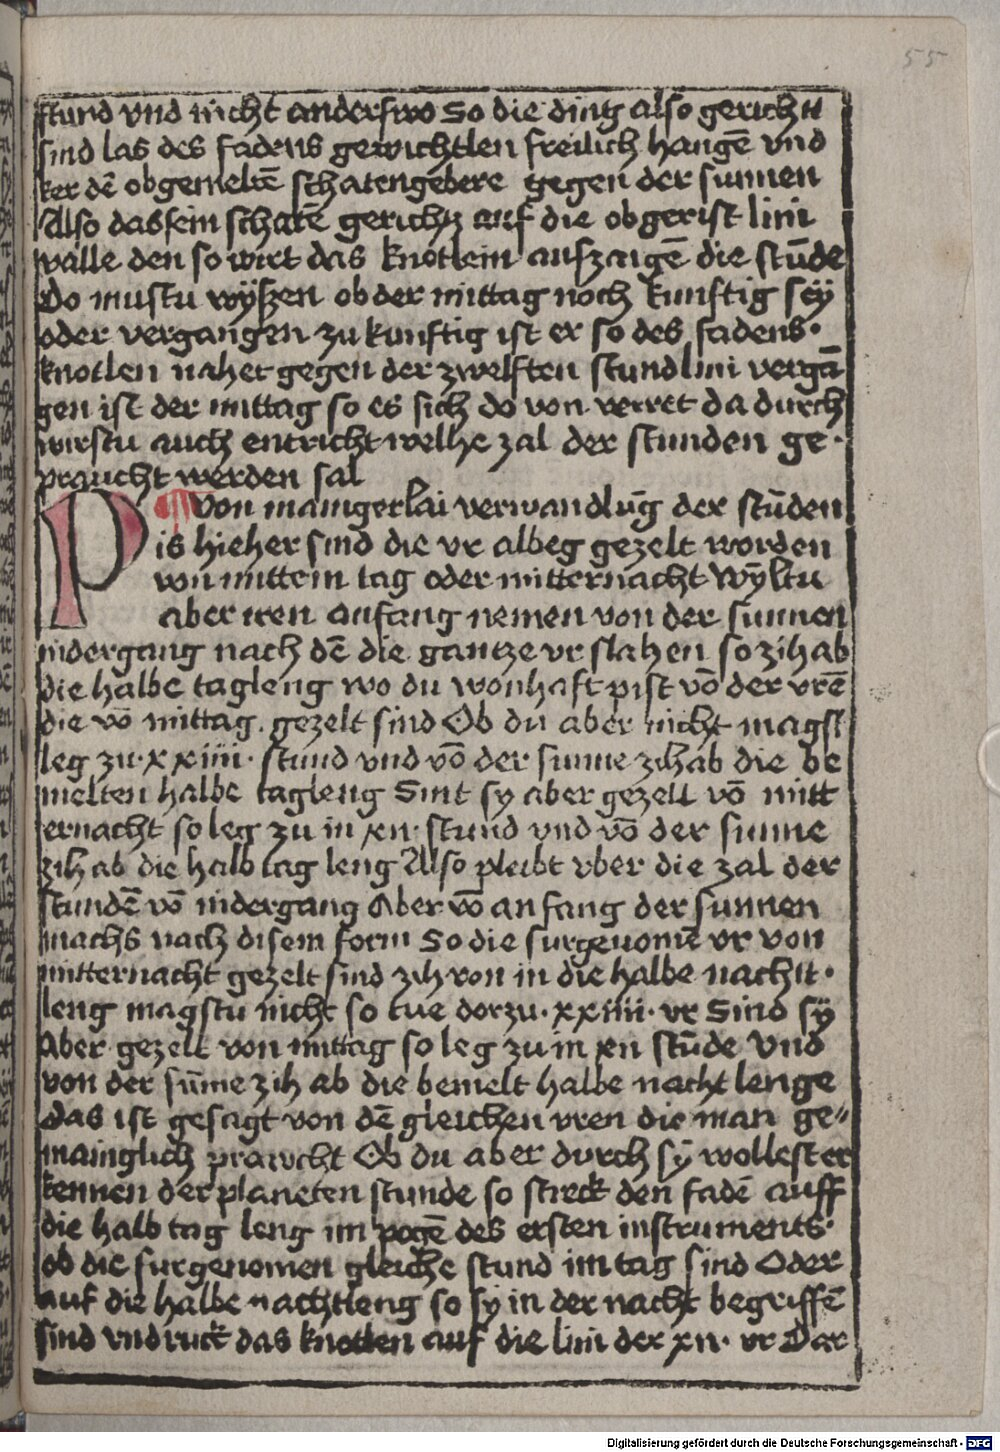 55
stund vnd nicht anderswo So die ding also gericht
sind las des fadens gewichtlen freilich hangē vnd
ker dē obgemeltē schatengebere gegen der sunnen
Also das sein schatē gericht auf die obgerist lini
valle den so wirt das knotlein aufzaigē die stūde
Do mustu wyßzen ob der mittag noch kunftig sey
oder vergangen zu kunftig ist er so des fadens·
knotlen nahet gegen der zwelften stundlini vergā
gen ist der mittag so es sich do von verret da durch
wirstu auch entricht welhe zal der stunden ge·
praucht werden sal
¶ Von maingerlai verwandlūg der stūden
Pis hieher sind die vr albeg gezelt worden
von mittem tag oder mitternacht Wyltu
aber iren anfang nemen von der sunnen
nidergang nach dē die gantze vr slahen so zih ab
die halbe tagleng wo du wonhaft pist vō der vrē
die vō mittag gezelt sind Ob du aber nicht magst
leg zu·xxiiii· stund vnd vō der sume zih ab die be
melten halbe tagleng Sint sy aber gezelt vō mitt
ernacht so leg zu in xii· stund vnd vō der sume
zih ab die halb tag leng Also pleibt vber die zal der
stundē vō nidergang Aber vō anfang der sunnen
machs nach disem form So die furgenomē vr von
mitternacht gezelt sind zih von in die halbe nacht·
leng magstu nicht so tue dorzu·xxiiii· vr Sind sy
Aber gezelt von mittag so leg zu in xii stūde Vnd
von der sūme zih ab die bemelt halbe nacht lenge
das ist gesagt von dē gleichen vren die man ge⸗
mainglich prawcht Ob du aber durch sy wollest er
kennen der planeten stunde so streck den fadē auff
die halb tag leng im pogē des ersten instruments·
ob die furgenomen gleiche stund im tag sind Oder
auf die halbe nachtleng so sy in der nacht begriffē
sind vnd ruck das knotlen auf die lini der xii· vr Dar
Digitalisierung gefördert durch die Deutsche Forschungsgemeinschaft - DFG